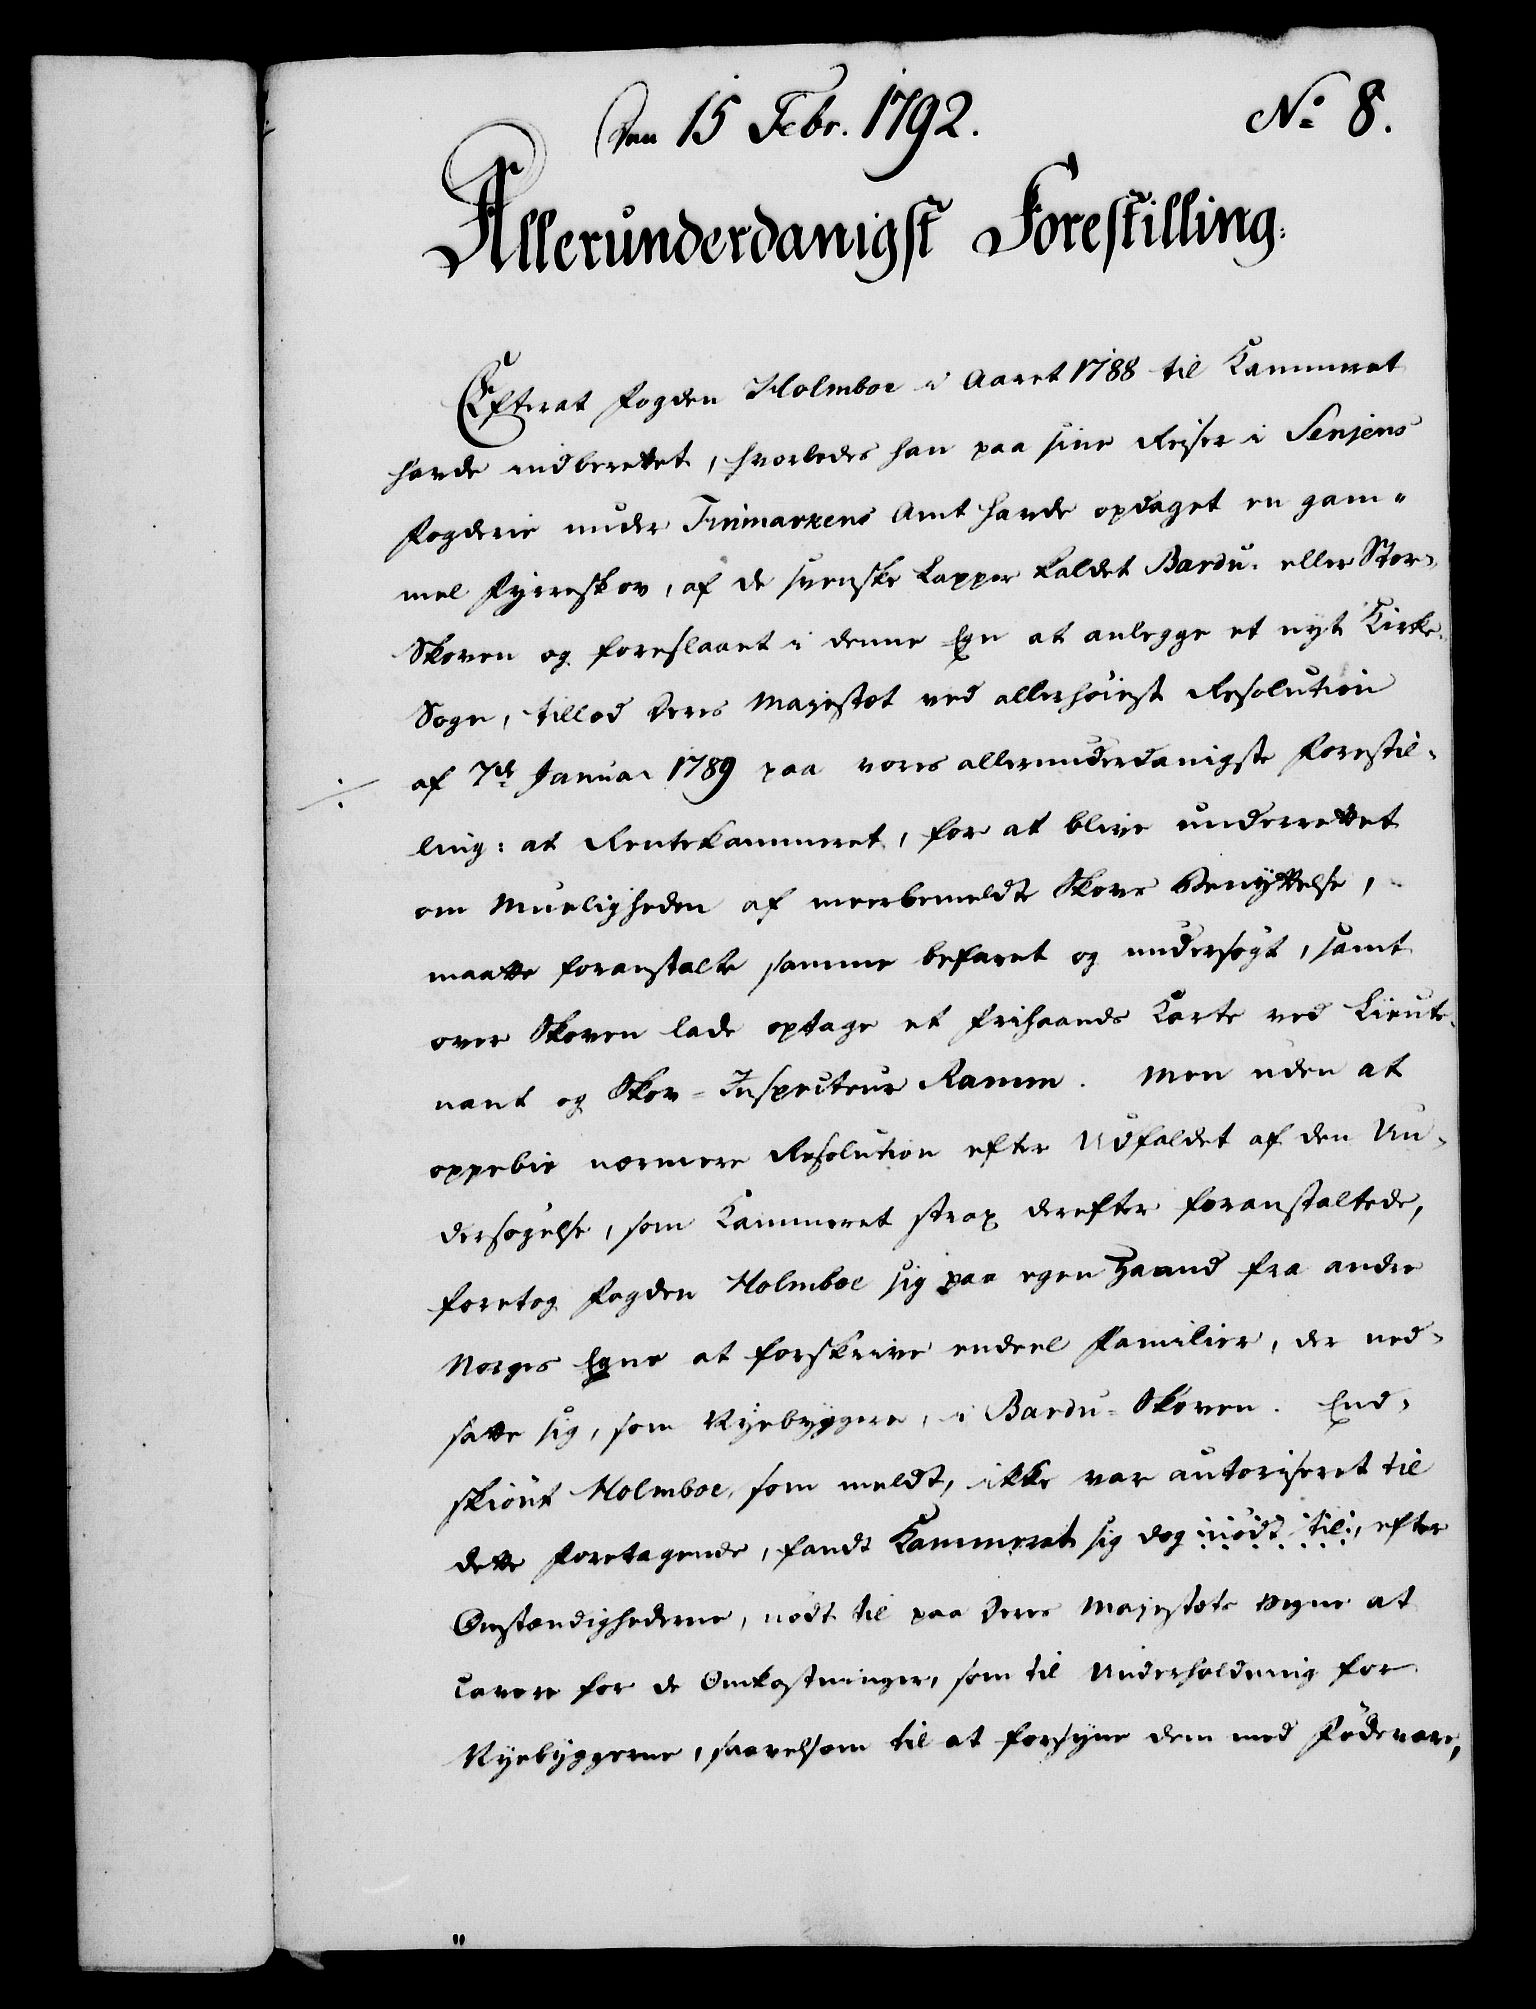 Den 15 Febr. 1792. No 8.
Allerunderdanigst Forestilling.
Efterat Fogden Holmboe i Aaret 1788 til Kammeret
havde indberettet, hvorledes han paa sine Reiser i Senjens
Fogderie under Finmarkens Amt havde opdaget en gam-
mel Fyrreskov, af de svenske Lapper kaldet Bardu- eller Stor-
Skoven og foreslaaet i denne Egn at anlegge et nyt Kirke-
Sogn, tillod Deres Majestæt ved allerhöieste Resolution
af 7de Januar 1789 paa vores allerunderdanigste Forestil-
ling: at Rentekammeret, for at blive underrettet
om Mueligheden af meerbemeldte Skovs Benyttelse,
maatte foranstalte samme befaret og undersögt, samt
over Skoven lade optage et Frihaands Karte ved Lieute-
nant og Skov-Inspecteur Ramm. Men uden at
oppebie nærmere Resolution efter Udfaldet af den Un-
dersögelse, som Kammeret strax derefter foranstaltede,
foretog Fogden Holmboe sig paa egen Haand fra andre
Norges Egne at forskrive endeel Familier, der ned-
satte sig, som Nyebyggere, i Bardu-Skoven. End-
skiönt Holmboe, som meldt, ikke var autoriseret til
dette Foretagende, fandt Kammeret sig dog nödt til, efter
Omstændighederne, nödt til paa Deres Majestæts Vegne at
cavere for de Omkostninger, som til Underholdning for
Nyebyggerne, saavelsom til at forsyne dem med Födevare,